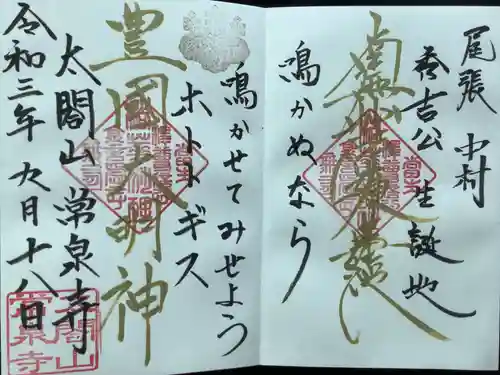 尾張 中村
秀吉公 生誕地
南無妙法蓮華経
鳴かぬなら
鳴かせてみせよう
ホトトギス
豊國大明神
太閤山 常泉寺
令和三年 九月十八日
太閤山
常泉寺